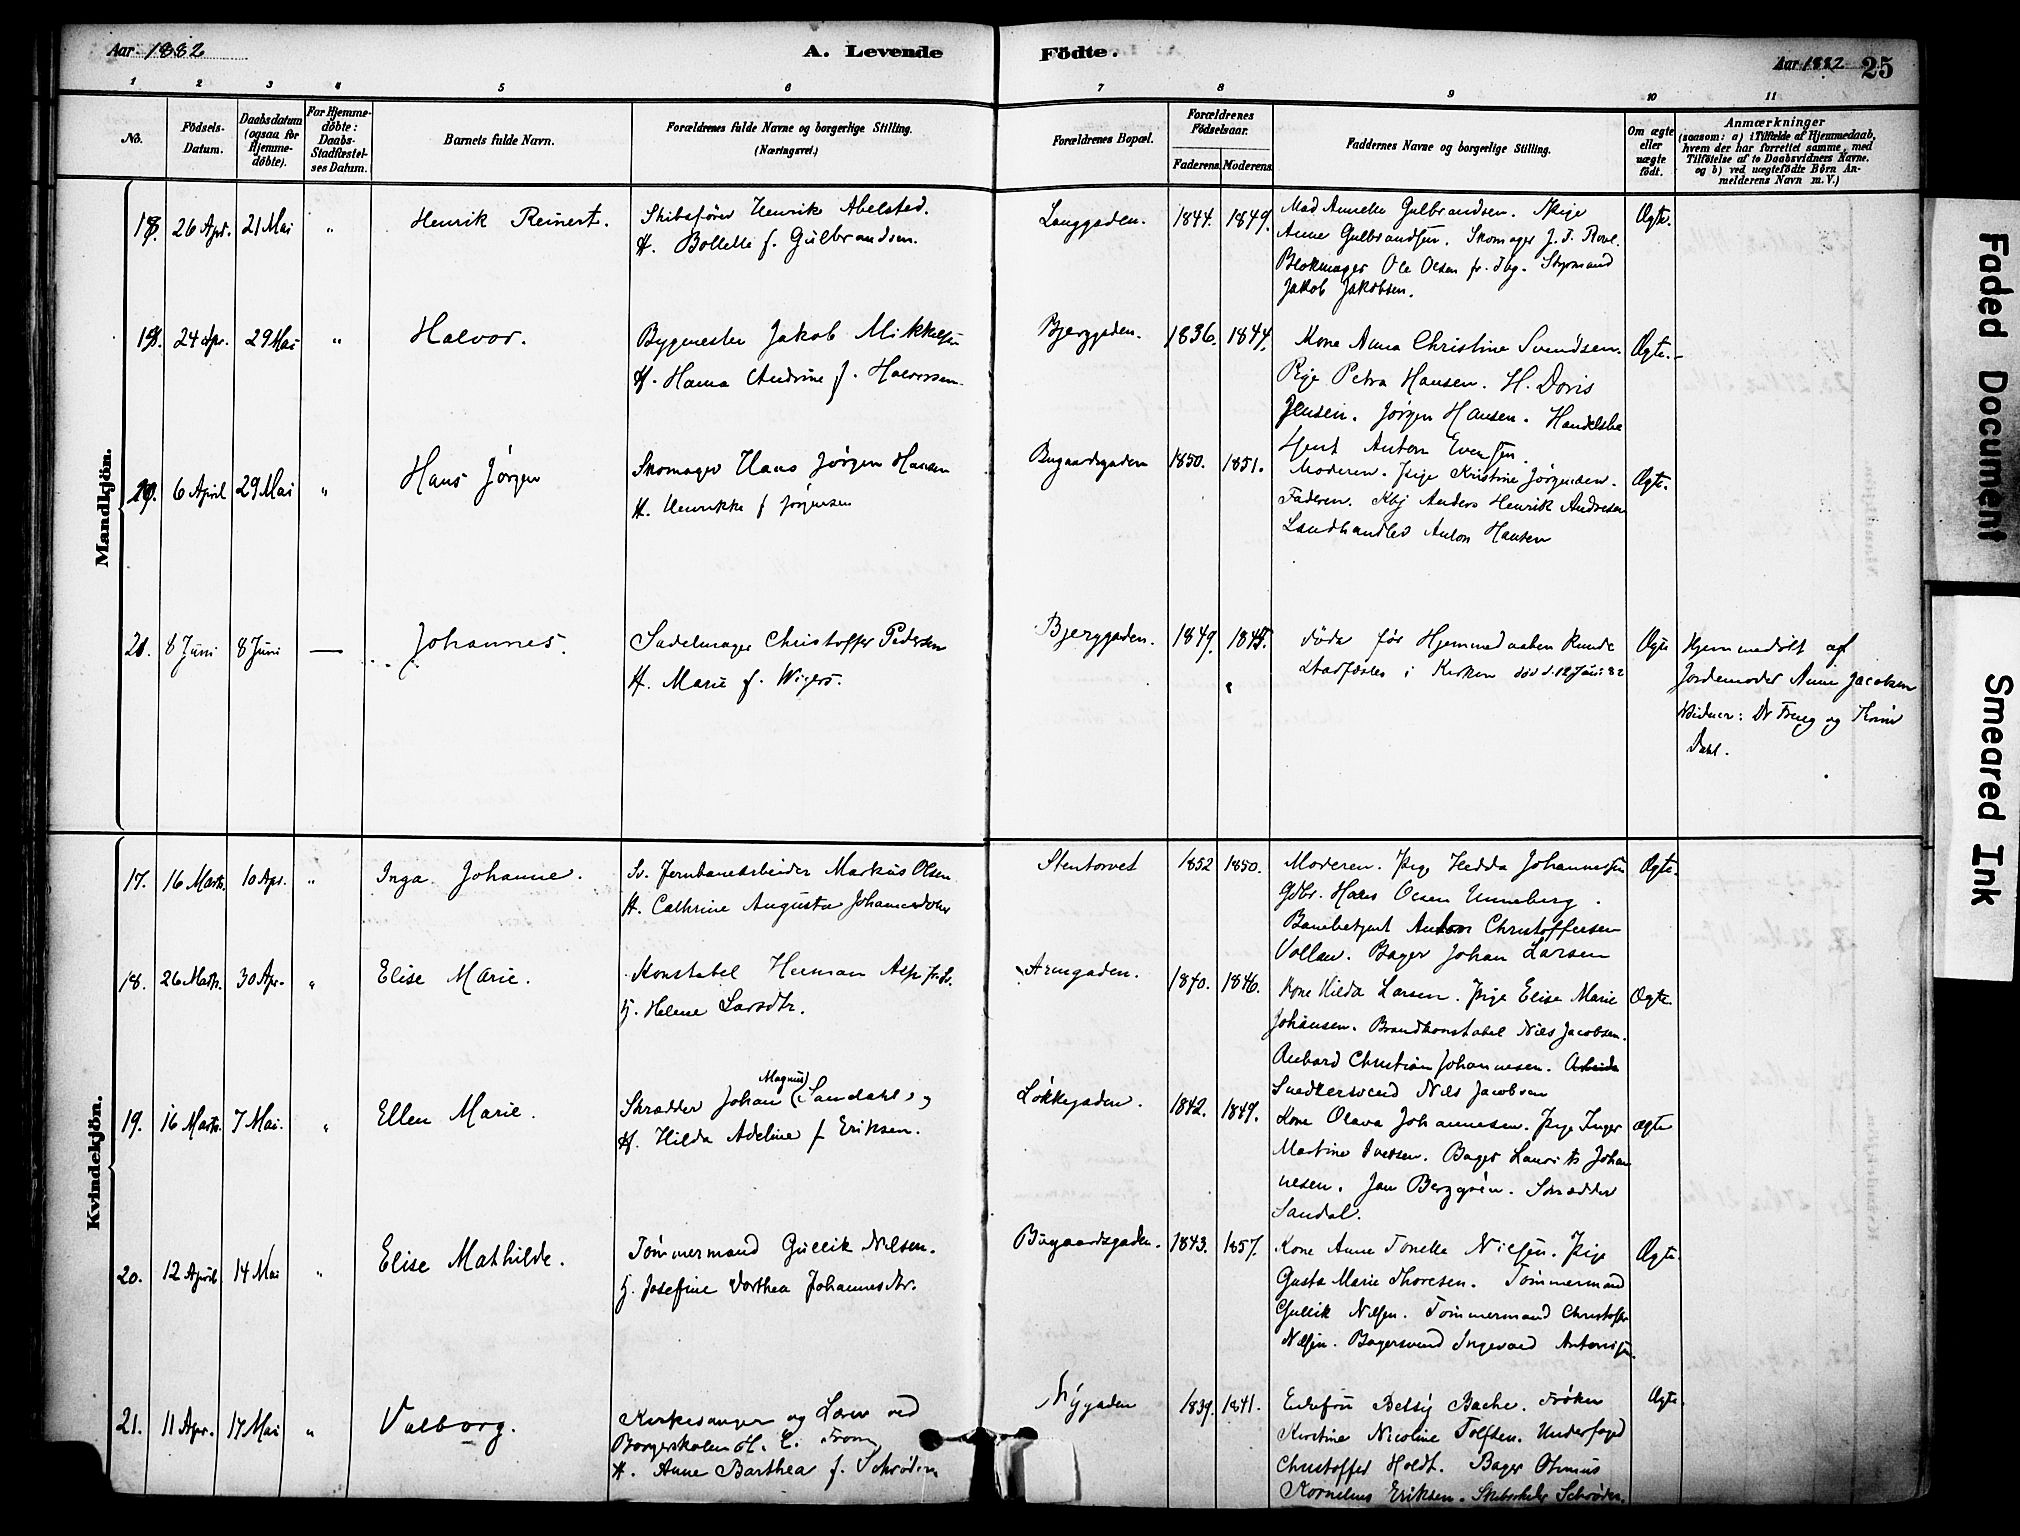 Aar 1882
A. Levende
Födte.
Aar 1882
25
1 2 3 4 5 6 7 8 9 10 11
No.
Födsels-Datum.
Daabsdatum (ogsaa for Hjemme-döbte).
For Hjemme-döbte: Daabs-Stadfæstel-ses Datum.
Barnets fulde Navn.
Forældrenes fulde Navne og borgerlige Stilling.
(Næringsvei.)
Forældrenes Bopæl.
Forældrenes Födselsaar.
Faderens Moderens
Faddernes Navne og borgerlige Stilling.
Om ægte eller uægte födt.
Anmærkninger
(saasom: a) i Tilfælde af Hjemmedaab, hvem der har forrettet samme, med Tilföielse af to Daabsvidners Navne. og b) ved uægtefödte Børn An-melderens Navn m. V.)
Mandkjön.
18. 26 Apr. 21 Mai " Henrik Reinert. Skibsfører Henrik Abelsted.
H. Bollette f. Gulbrandsen.
Langgaden. 1844. 1849.
Mad Annethe Gulbrandsen. Pige
Anne Gulbrandsen. Skomager J. T.
Blokmager Ole Olsen fr. Tbg. Styrmand
Jakob Jakobsen.
Ægte.
19. 24 Apr. 29 Mai " Halvor. Bygmester Jakob Mikkelsen
H. Hanna Andrine f. Halvorsen.
Bjerggaden. 1836. 1844.
Kone Anna Christine Svendsen.
Pige Petra Hansen. H. Doris
Jensen. Jørgen Hansen. Handelsbe
tjent Anton Evensen.
Ægte.
20. 6 April 29 Mai " Hans Jørgen Skomager Hans Jørgen Hansen
H. Henrikke f Jørgensen
Bugaardsgaden 1850. 1851.
Moderen. Pige Kristine Jørgensen.
Faderen. Kbj Anders Henrik Andresen
Landhandler Anton Hansen
Ægte.
21. 8 Juni 8 Juni — Johannes. Sadelmager Christoffer Pedersen
H. Marie f. Wigers.
Bjerggaden. 1849. 1845.
døde før Hjemmedaaben kunde
stadfæstes i Kirken død d. 12 Juni 82
Ægte
Hjemmedøbt af
Jordemoder Anne Jacobsen
Vidner: Dr og
Dahl.
Kvindekjön.
17. 16 Marts. 10 Apr. " Inga Johanne. Sv. Jernbanearbeider Markus Olsen
H. Cathrine Augusta Johannesdatter
Stentorvet 1852 1850.
Moderen. Pige Hedda Johannessen
Gdbr. Hans Olsen Unneberg.
Banebetjent Anton Christoffersen
Vollan. Bager Johan Larsen
Ægte.
18. 26 Marts. 30 Apr. " Elise Marie. Konstabel Herman Asp fr. Sv.
H. Helene Larsdtr.
Armgaden. 1840. 1846.
Kone Hilda Larsen. Pige Elise Marie
Johansen. Brandkonstabel Nils Jacobsen.
Christian Johannesen.
Snedkersvend Nils Jacobsen
Ægte.
19. 16 Marts. 7 Mai. " Ellen Marie. Skrædder Johan (Magnus) Sandahl og
H. Hilda Adeline f Eriksen.
Løkkegaden. 1842. 1849.
Kone Olava Johannesen. Pige Inger
Martine Iversen. Bager Laurits Johan
nesen. Jan Berggrén. Skrædder
Sandal.
ægte
20. 12 April 14 Mai " Elise Mathilde. Tømmermand Gullik Nilsen.
H. Josefine Dorthea Johannesdtr.
Bugaardsgaden. 1843. 1857.
Kone Anne Tonette Nielsen. Pige
Gusta Marie Thoresen. Tømmermand
Gullik Nilsen. Tømmermand Christoffer
Nilsen. Bagersvend Ingevald Antonisen.
Ægte.
21. 11 Apr. 17 Mai " Valborg. Kirkesanger og Lærer ved
Borgerskolen H. C.
H. Anne Barthea f. Schrøder
Nygaden 1839. 1841.
Enkefru Betsy Bache. Frøken
Kirstine Nicoline Tollfsen. Underfoged
Christoffer Holdt. Bager Othinius
Kornelius Eriksen. Skibsreder Schrøder.
Ægte.
Faded Document
Smeared Ink